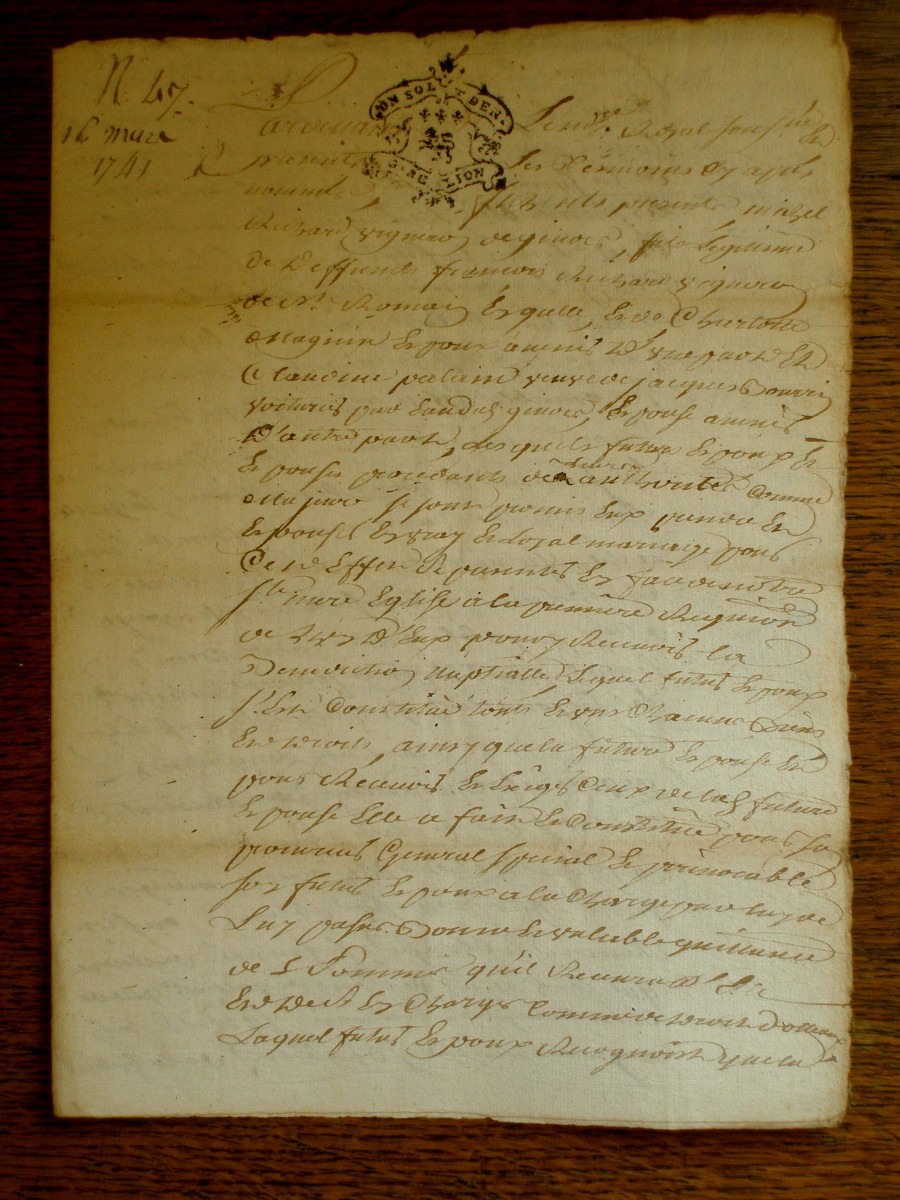 N. 47.
16 mars
1741
UN SOL SIX DEN
G. DE LION
Pardevant Le no.re Royal soussigné Et
presents Les Temoins Cy apres
nommés furent presents michel
Richard vigneron de givors, fils Legitime
de Deffunts francois Richard vigneron
de St. Romain En galle, Et de Charlotte
Magnin Epoux avenir D'une part Et
Claudine palain veuve de jacques
voiturier par Eau du givors, Epouse avenir
D'autre part, Lesquels futurs Epoux Et
Epouse procedants de Leurs authorités Comme
Majeurs se sont promis Eux prendre En
Epouses En vray Et Loyal mariage pour
Cet Effet Se presenter En face de notre
Ste. mere Eglise a la premiere Requisition
de L'un D'Eux pour y Recevoir la
Benediction nuptialle Lequel futur Epoux
s'Est Constitué touts Et uns Chacuns Biens
Et droits, ainsy que la future Epouse Et
pour Recevoir Et Exiger Ceux de lad. future
Epouse Elle a fait Et Constitué pour son
procureur General special Et jrrevocable
sond. futur Epoux a la Charge par luy de
Luy passer Bonne Et valable quittance
de sommes qu'il Recevra
Et Charges Comme de droit
Lequel futur Epoux Recognoist que la